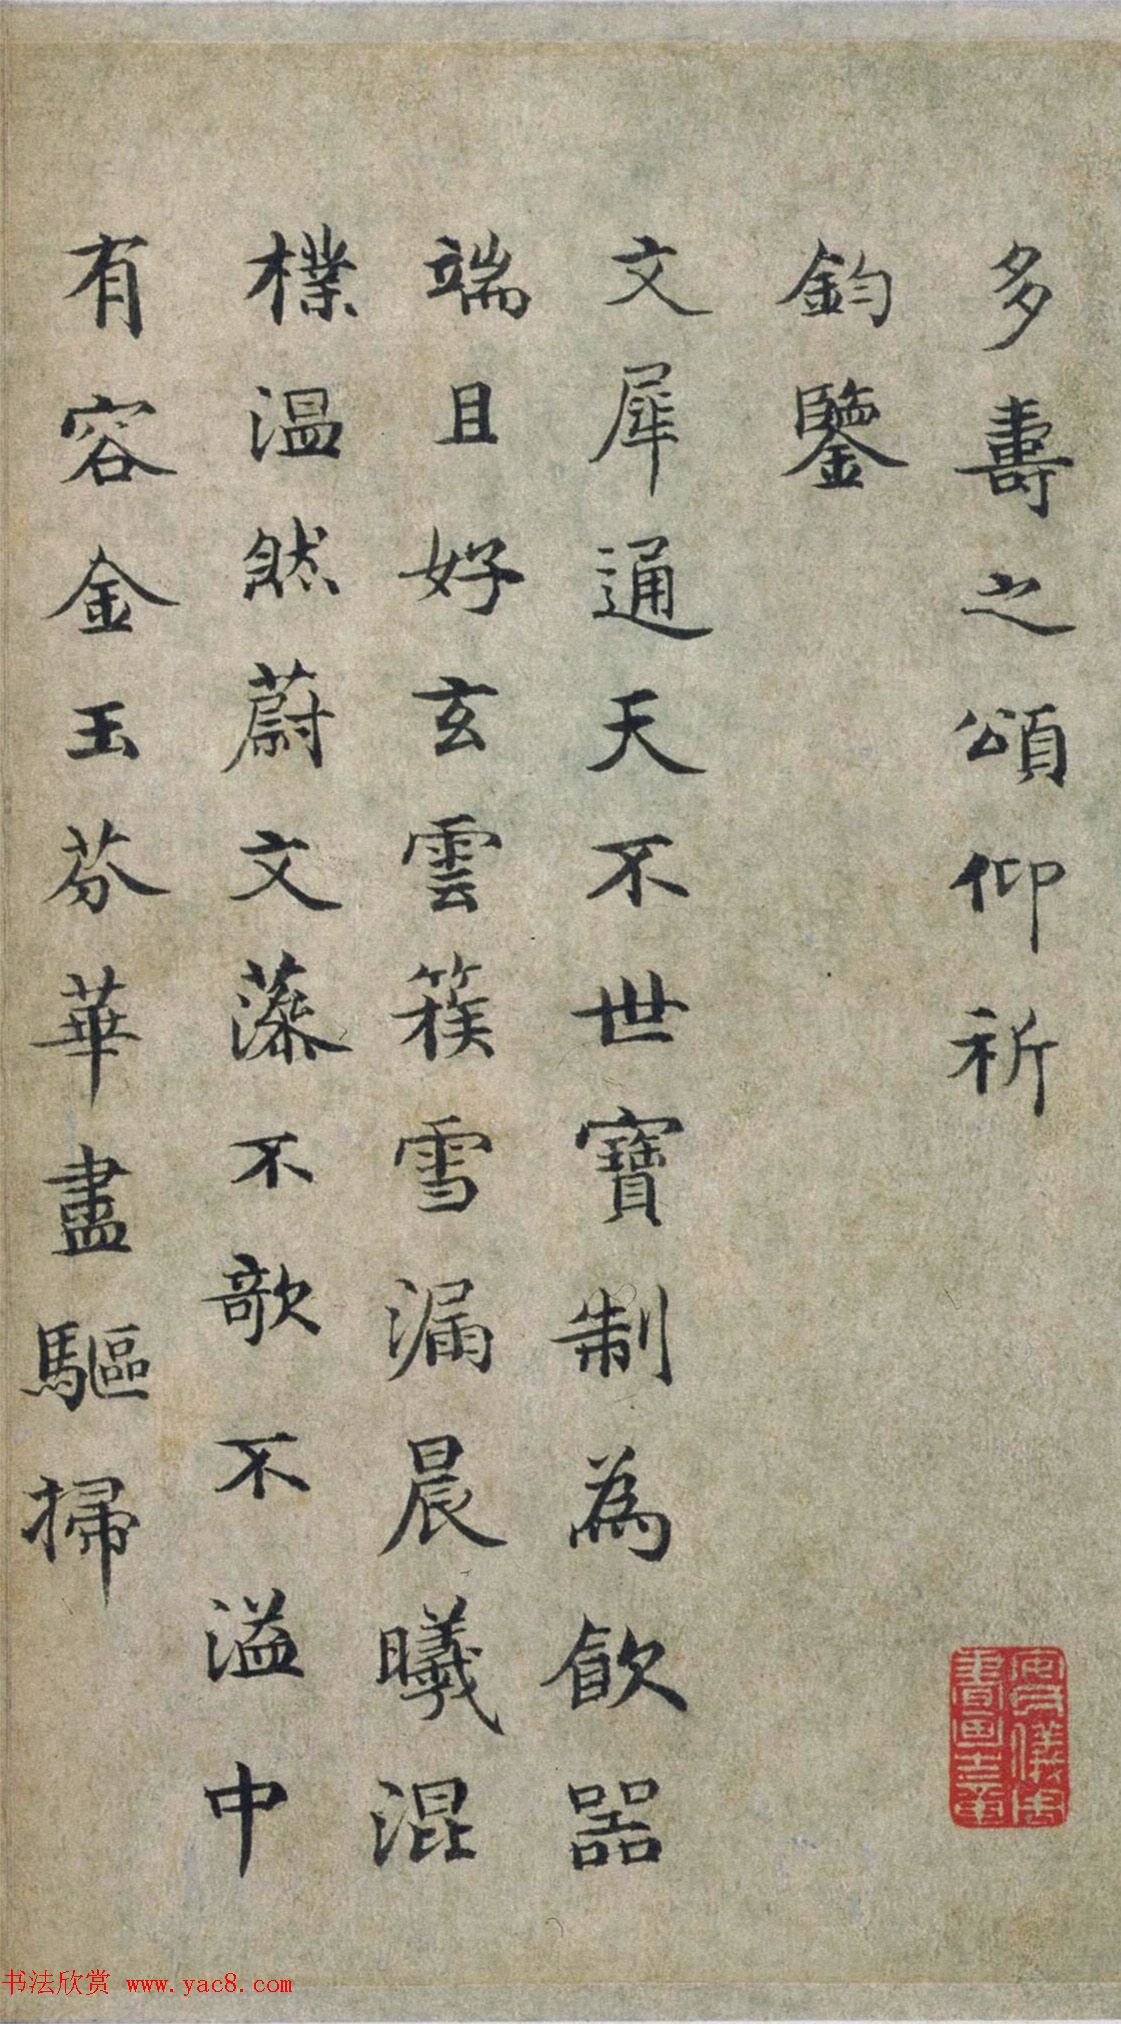 多壽之頌仰祈
鈞鑒
文犀通天不世寶制為飲器
端且好玄雲簇雪漏晨曦混
樸溫然蔚文藻不欹不溢中
有容金玉芬華盡驅掃
安儀周
書畫之章
书法欣赏 www.yac8.com